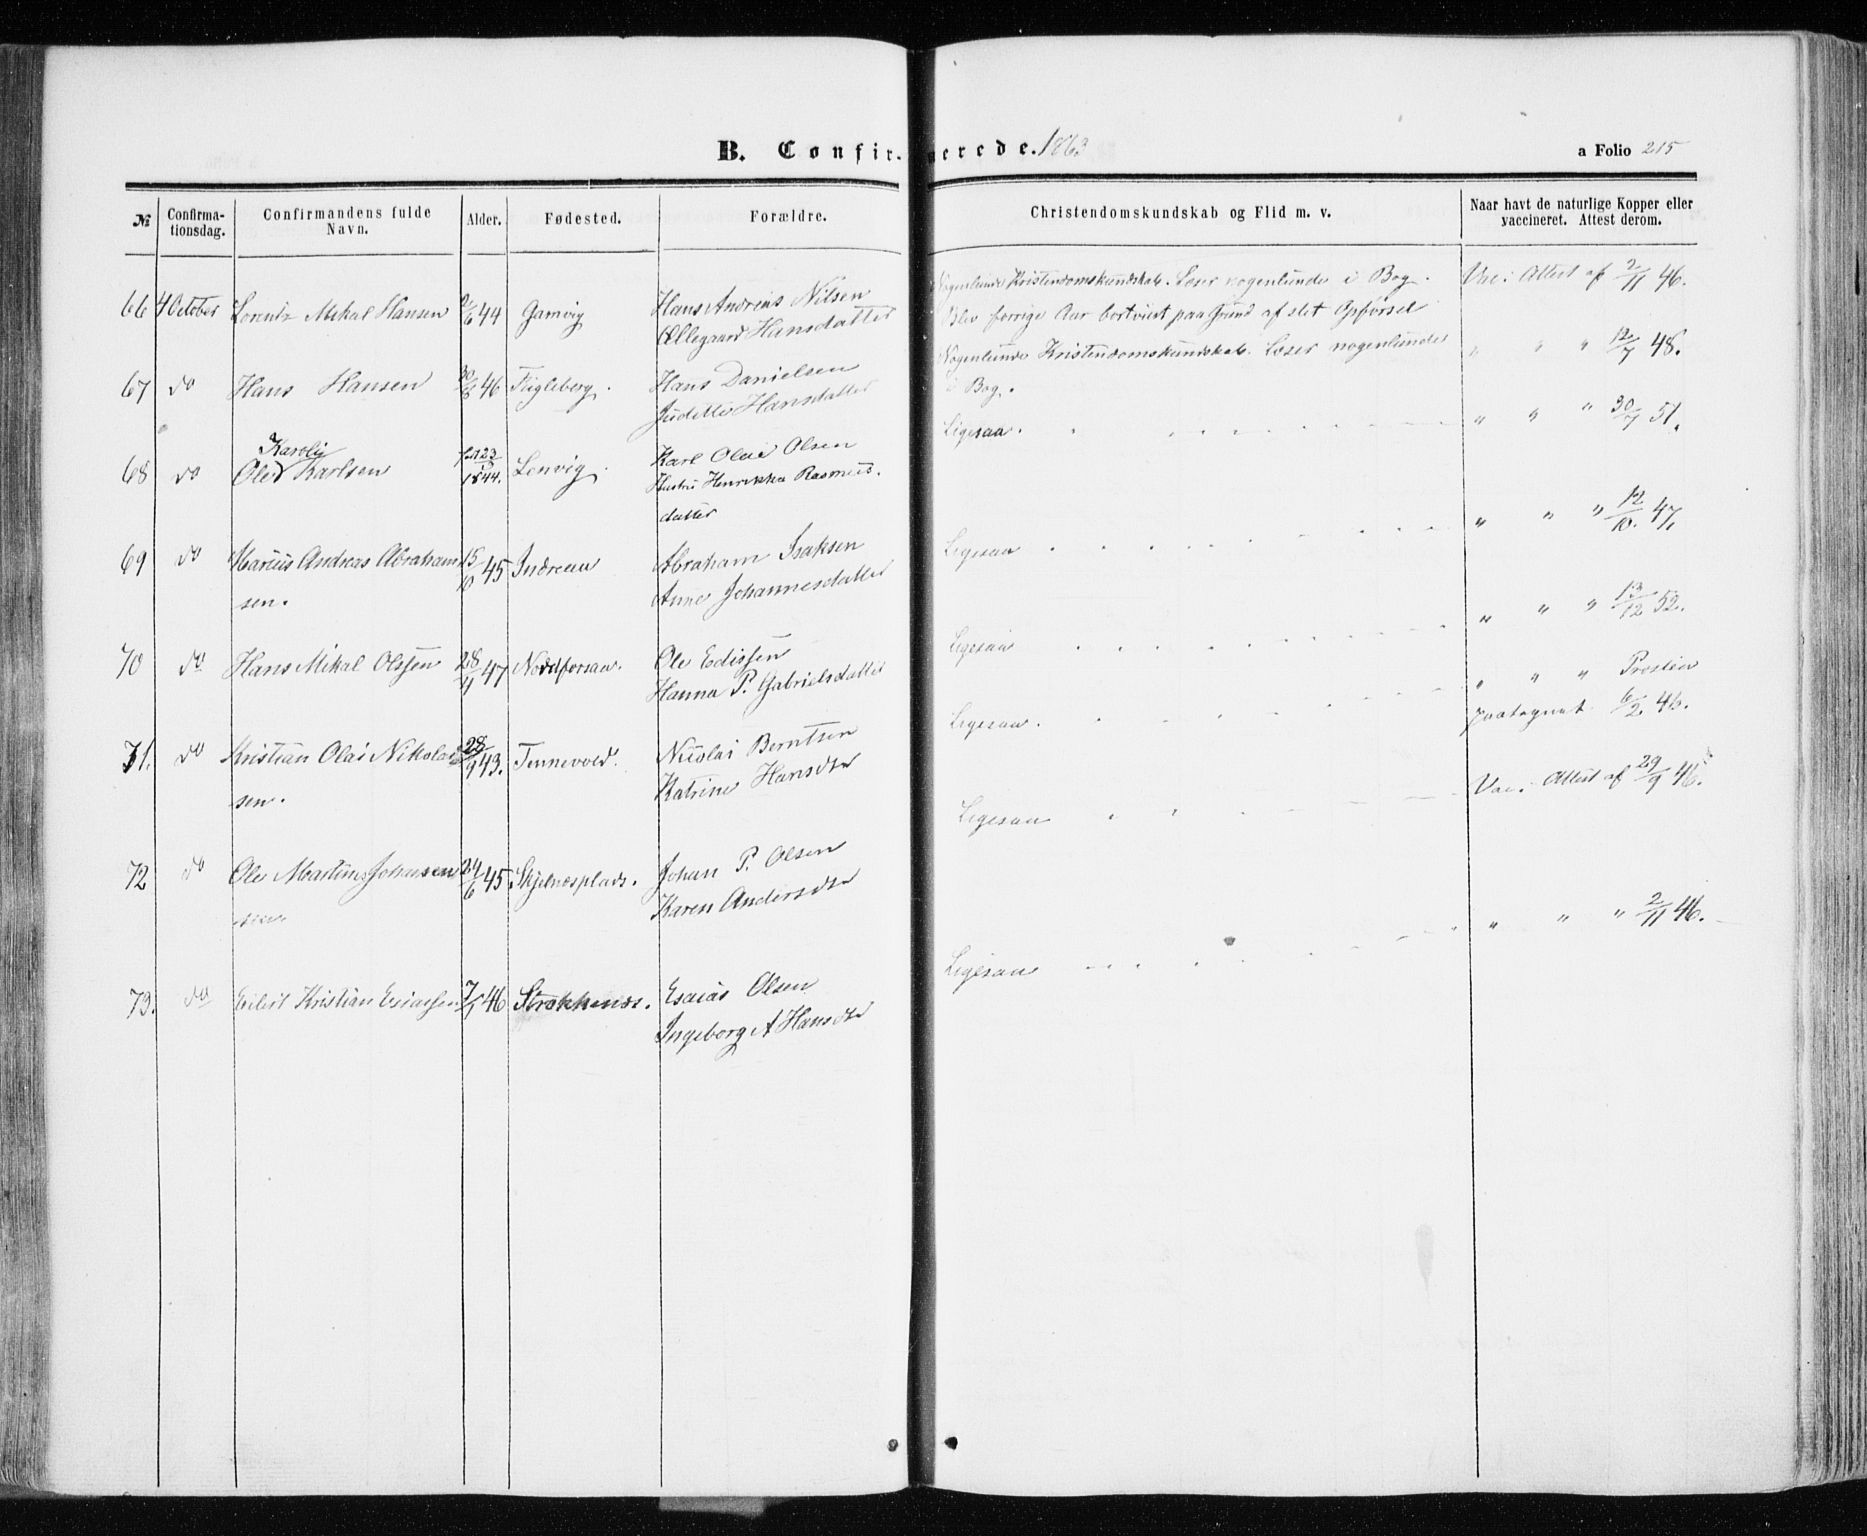 B. Confir- merede. 1863
a Folio 215
№
Confirma-
tionsdag.
Confirmandens fulde
Navn.
Alder.
Fødested.
Forældre.
Christendomskundskab og Flid m. v.
Naar havt de naturlige Kopper eller
vaccineret. Attest derom.
66 4 October Lorentz Mikal Hansen 44 Gamvig Hans Andreas Nilsen
Ellegaard Hansdatter
Nogenlunde Kristendomskundskab. Læser nogenlunde i Bog.
Blev forrige Aar bortvist paa Grund af slet Opførsel
Vac: Attest af 2/11 46.
67 do Hans Hansen 46 Fugleberg. Hans Danielsen
Judette Hansdatter
Nogenlunde Kristendomskundskab. Læser nogenlunde
i Bog.
" " " 12/7 48.
68 do Ole Karoli Karlsen 23/3 1844. Lenvig. Karl Olai Olsen
Hustru Henrikka Rasmus-
datter
Ligesaa.
" " " 30/7 51.
69 do Marius Andreas Abraham
sen.
15/10 45 Indreaa Abraham Isaksen
Anne Johannesdatter
Ligesaa
" " " 12/10. 47.
70 do Hans Mikal Olssen 28/4 47 Nordforsaa. Ole Edissen
Hanna P. Gabrielsdatter
Ligesaa
" " " 13/12 52.
71. do Kristian Olai Nikolai
sen.
28/9 43. Tennevold. Nicolai Berntsen
Katrine Hansdtr
Ligesaa.
" " " Provsten
paategnet 6/2 46.
72 do Ole Martinus Johansen
24/6 45 Skjelnesplads. Johan P. Olsen
Karen Andersdtr
Ligesaa
Vac. Attest af 29/9 46.
73. do Eilert Kristian Esaiassen 7/1 46 Strokkenæs. Esaias Olsen
Ingeborg A Hansdtr
Ligesaa
" " " 2/11 46.